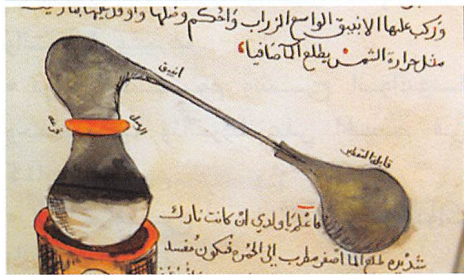 وركب عليها الانبيق الواسع الزراب واحكم وصلها واوقد عليها بنار لينة
مثل حرارة الشمس يطلع الماء صافيا
انبيق
الوصل
قابلة التقطير
فاعلم يا ولدي ان كانت نارك
شديده طلع الما أصفر مطرب الى الحمره فيكون مفسد